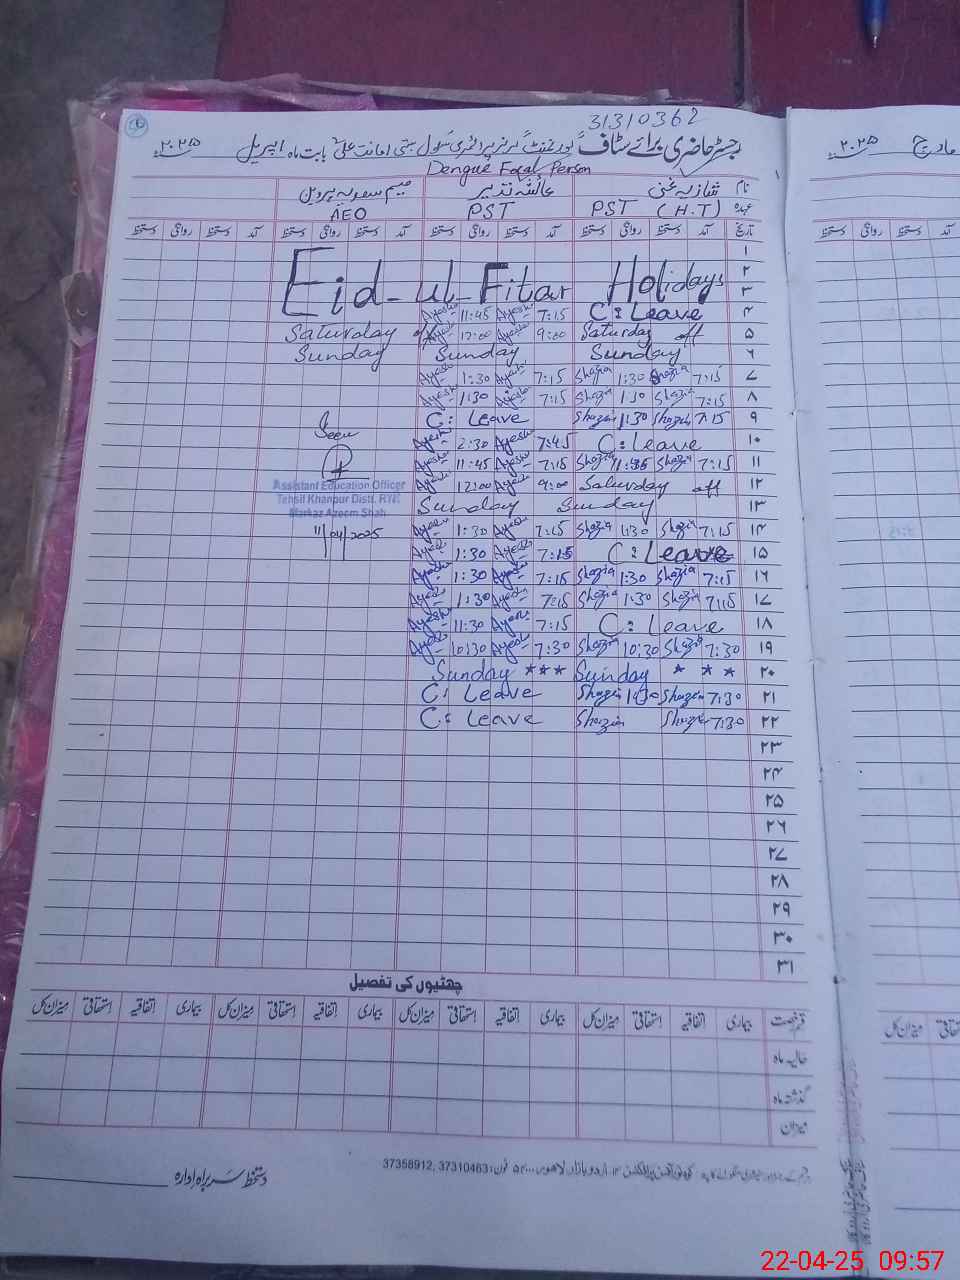 31310362
رجسٹر حاضری برائے سٹاف گورنمنٹ گرلز پرائمری سکول بستی امانت علی بابت ماہ اپریل ۲۰۲۵ء
مارچ ۲۰۲۵ء
Dengue Focal Person
نام شازیہ غنی عائشہ نذیر میم سعدیہ پروین
عہدہ PST (H.T) PST AEO
تاریخ آمد دستخط روانگی دستخط آمد دستخط روانگی دستخط آمد دستخط روانگی دستخط آمد دستخط روانگی دستخط
۱
۲ Eid-ul-Fitar Holidays
۳
۴ C: Leave 7:15 Ayesha 11:45 Ayesha
۵ Saturday off 9:00 Ayesha 12:00 Ayesha Saturday off
۶ Sunday Sunday Sunday
۷ 7:15 Shazia 1:30 Shazia 7:15 Ayesha 1:30 Ayesha
۸ 7:15 Shazia 1:30 Shazia 7:15 Ayesha 1:30 Ayesha
۹ 7:15 Shazia 1:30 Shazia C: Leave
۱۰ C: Leave 7:45 Ayesha 2:30 Ayesha
Seen
۱۱ 7:15 Shazia Shazia 7:15 Ayesha 11:45 Ayesha
۱۲ Saturday off 9:00 Ayesha 12:00 Ayesha
Assistant Education Officer
Tehsil Khanpur Distt. RYK
Markaz Azeem Shah
11/04/2025
۱۳ Sunday Sunday
۱۴ 7:15 Shazia 1:30 Shazia 7:15 Ayesha 1:30 Ayesha
۱۵ C: Leave 7:15 Ayesha 1:30 Ayesha
۱۶ 7:15 Shazia 1:30 Shazia 7:15 Ayesha 1:30 Ayesha
۱۷ 7:15 Shazia 1:30 Shazia 7:15 Ayesha 1:30 Ayesha
۱۸ C: Leave 7:15 Ayesha 11:30 Ayesha
۱۹ 7:30 Shazia 10:30 Shazia 7:30 Ayesha 10:30 Ayesha
۲۰ Sunday *** Sunday * * *
۲۱ 7:30 Shazia 1:30 Shazia C: Leave
۲۲ 7:30 Shazia Shazia C: Leave
۲۳
۲۴
۲۵
۲۶
۲۷
۲۸
۲۹
۳۰
۳۱
چھٹیوں کی تفصیل
قسم رخصت بیماری اتفاقیہ استحقاقی میزان کل بیماری اتفاقیہ استحقاقی میزان کل بیماری اتفاقیہ استحقاقی میزان کل بیماری اتفاقیہ استحقاقی میزان کل
حالیہ ماہ
گذشتہ ماہ
میزان
اردو بازار لاہور فون: 37310463, 37358912
دستخط سربراہ ادارہ
22-04-25 09:57